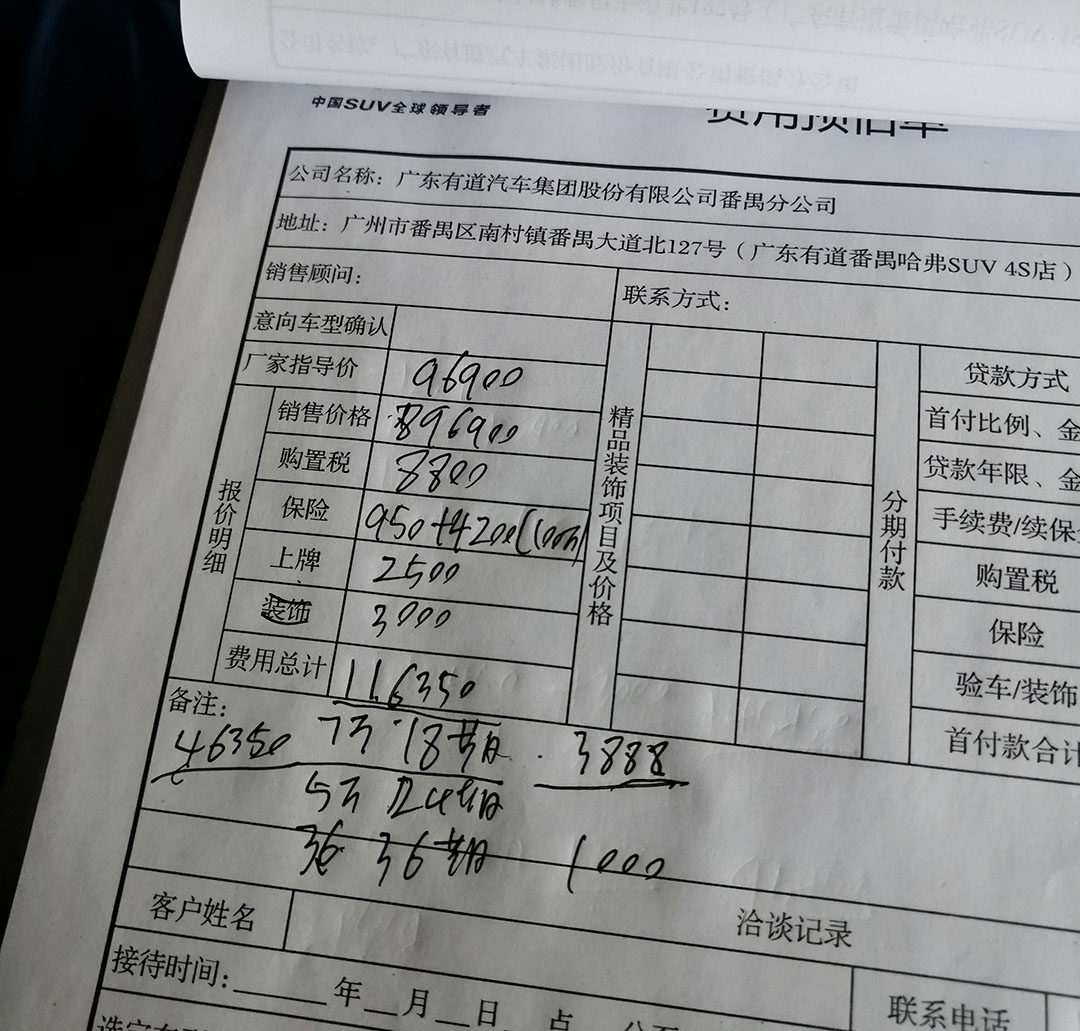 中国SUV全球领导者
费用预估单
公司名称：广东有道汽车集团股份有限公司番禺分公司
地址：广州市番禺区南村镇番禺大道北127号（广东有道番禺哈弗SUV 4S店）
销售顾问：
联系方式：
意向车型确认
厂家指导价 96900
报价明细
销售价格 896900
购置税 8800
保险 950+4200(100万)
上牌 2500
装饰 3000
费用总计 116350
精品装饰项目及价格
分期付款
贷款方式
首付比例、金
贷款年限、金
手续费/续保
购置税
保险
验车/装饰
首付款合计
备注：
46350 7万 18期 3888
5万 24期
36 36期 1000
客户姓名
洽谈记录
接待时间：
年 月 日 点
联系电话